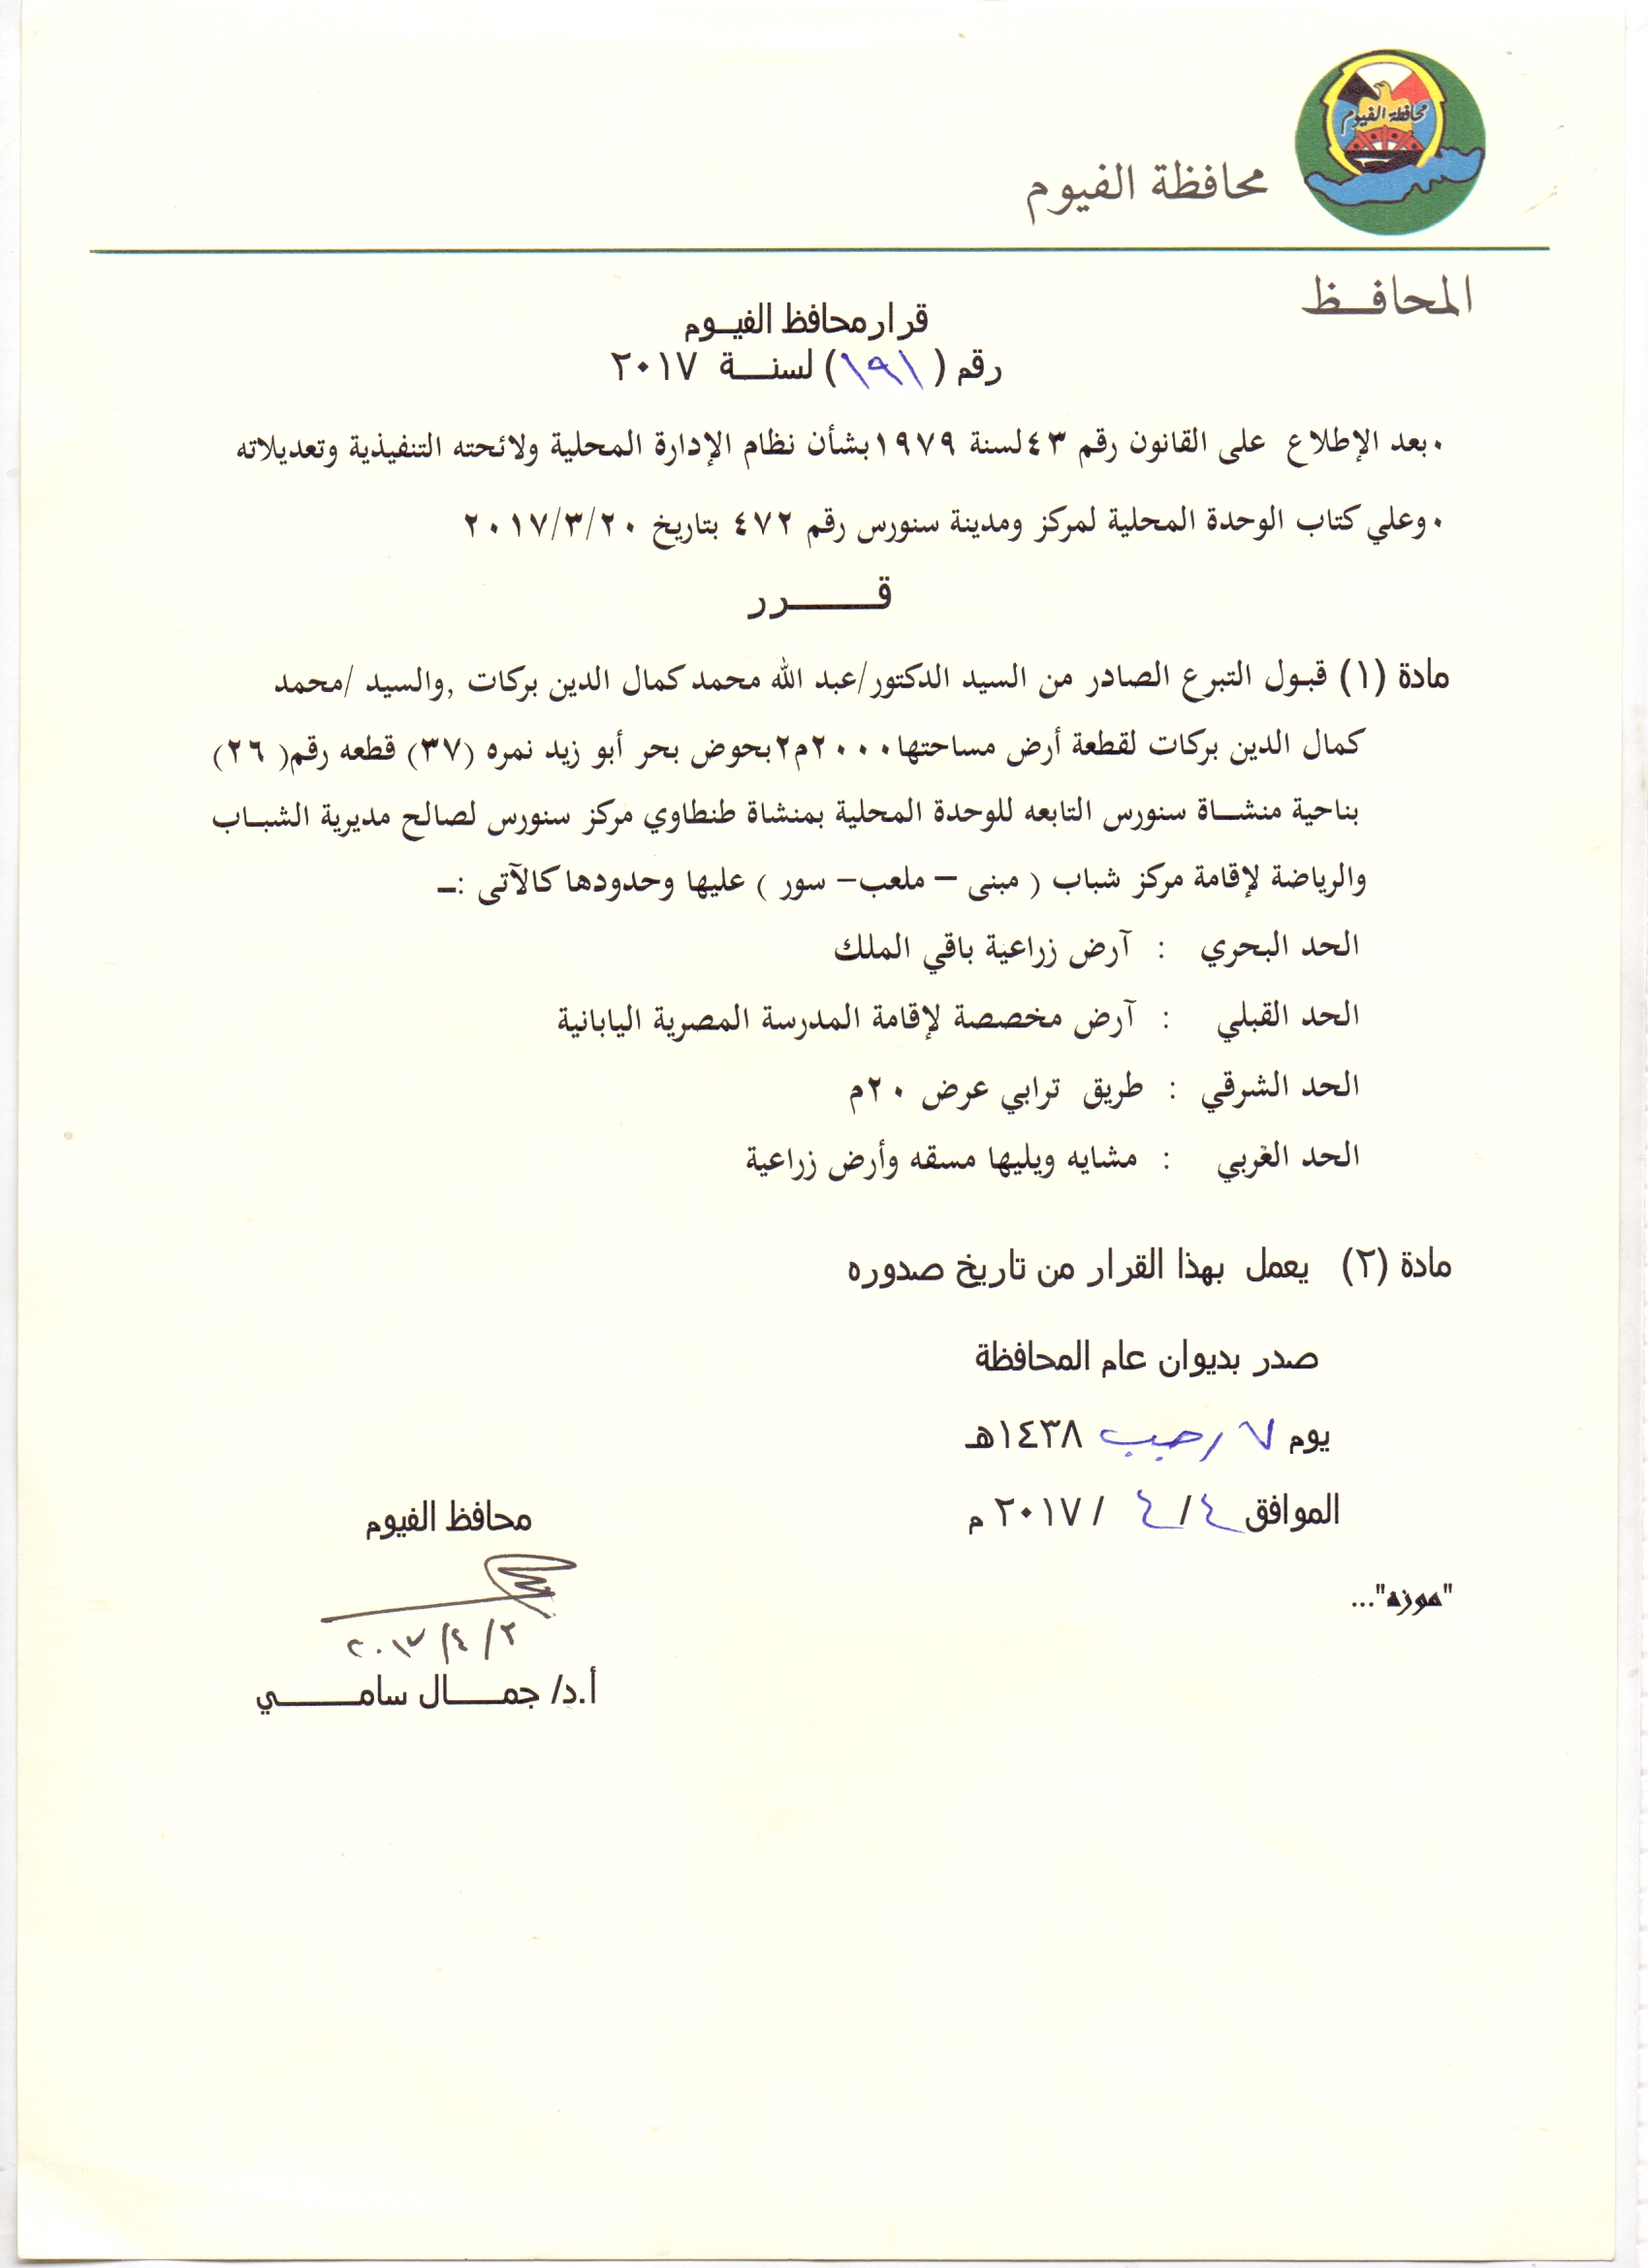 محافظة الفيوم
محافظة الفيوم
المحافـــظ
قرار محافظ الفيــوم
رقم ( ١٩١ ) لسنــــة ٢٠١٧
٠بعد الإطلاع على القانون رقم ٤٣لسنة ١٩٧٩بشأن نظام الإدارة المحلية ولائحته التنفيذية وتعديلاته
٠وعلي كتاب الوحدة المحلية لمركز ومدينة سنورس رقم ٤٧٢ بتاريخ ٢٠١٧/٣/٢٠
قـــــــرر
مادة (١) قبـول التبرع الصادر من السيد الدكتور/عبد الله محمد كمال الدين بركات ,والسيد /محمد
كمال الدين بركات لقطعة أرض مساحتها٢٠٠٠م٢بحوض بحر أبو زيد نمره (٣٧) قطعه رقم( ٢٦)
بناحية منشــاة سنورس التابعه للوحدة المحلية بمنشاة طنطاوي مركز سنورس لصالح مديرية الشبـاب
والرياضة لإقامة مركز شباب ( مبنى – ملعب– سور ) عليها وحدودها كالآتى :ــ
الحد البحري : آرض زراعية باقي الملك
الحد القبلي : آرض مخصصة لإقامة المدرسة المصرية اليابانية
الحد الشرقي : طريق ترابي عرض ٢٠م
الحد الغربي : مشايه ويليها مسقه وأرض زراعية
مادة (٢) يعمل بهذا القرار من تاريخ صدوره
صدر بديوان عام المحافظة
يوم ٧ رجب ١٤٣٨هـ
الموافق ٤/ ٤ / ٢٠١٧ م
محافظ الفيوم
"موزه"...
٢ /٤ /٢٠١٧
أ.د/ جمـــــال سامـــــــي